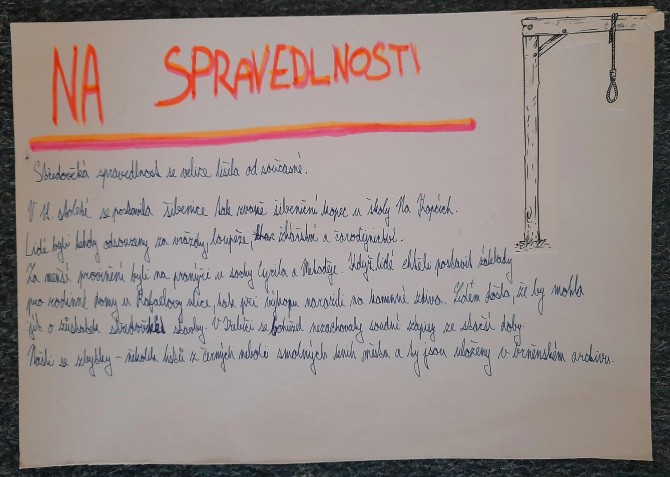 NA SPRAVEDLNOSTI
Středověká spravedlnost se velice lišila od současné.
V 14. století se postavila šibenice tak zvaně šibeniční kopec u školy Na Kopcích.
Lidé byli tehdy odsouzeny za vraždy, loupeže, žhářství a čarodějnictví.
Za menší provinění byli na pranýři u sochy Cyrila a Metoděje. Když lidé chtěli postavit základy
pro rodinné domy u Rafaelovy ulice, tak při výkopu narazili na kamenné zdiva. Lidem došlo, že by mohlo
jít o zůstatek středověké stavby. V Třebíči se bohužel nezachovaly soudní zápisy ze starší doby.
Našli se zbytky - několik listů z černých neboli smolných knih města a ty jsou uloženy v brněnském archivu.